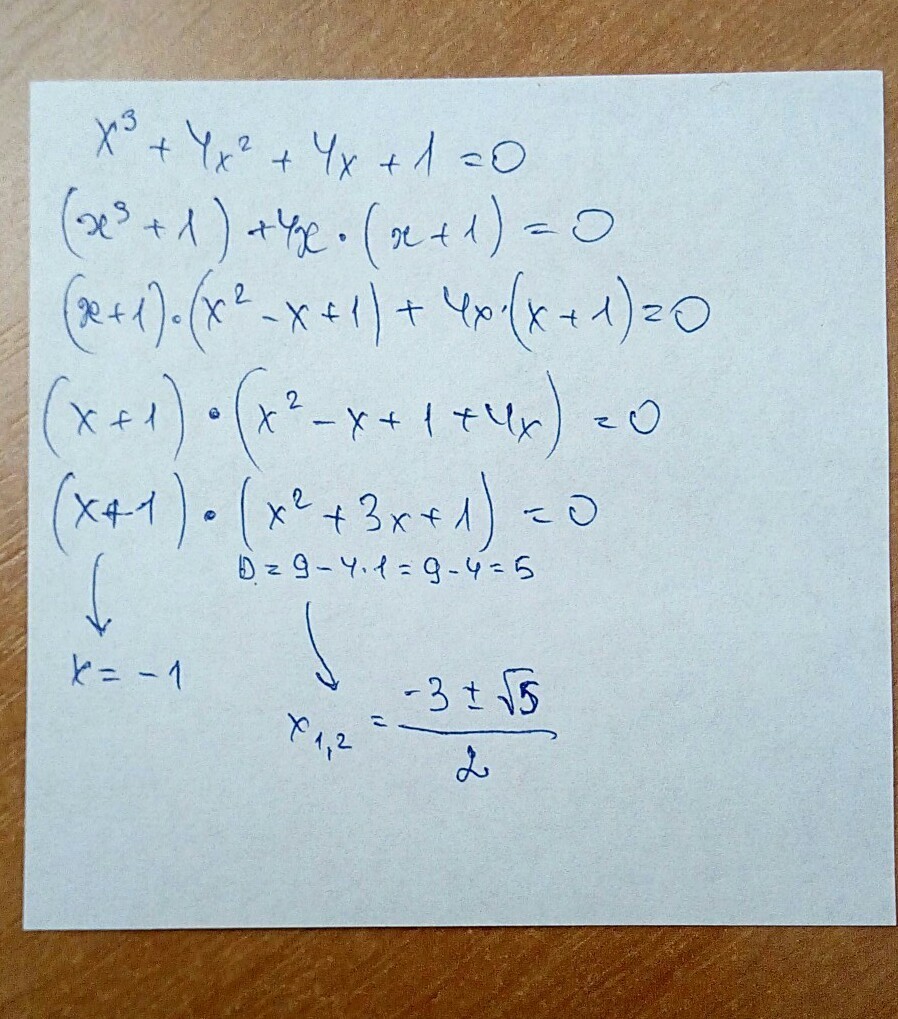 x³ + 4x² + 4x + 1 = 0
(x³ + 1) + 4x · (x + 1) = 0
(x + 1) · (x² - x + 1) + 4x · (x + 1) = 0
(x + 1) · (x² - x + 1 + 4x) = 0
(x + 1) · (x² + 3x + 1) = 0
D = 9 - 4 · 1 = 9 - 4 = 5
x = -1
x₁,₂ = (-3 ± √5) / 2